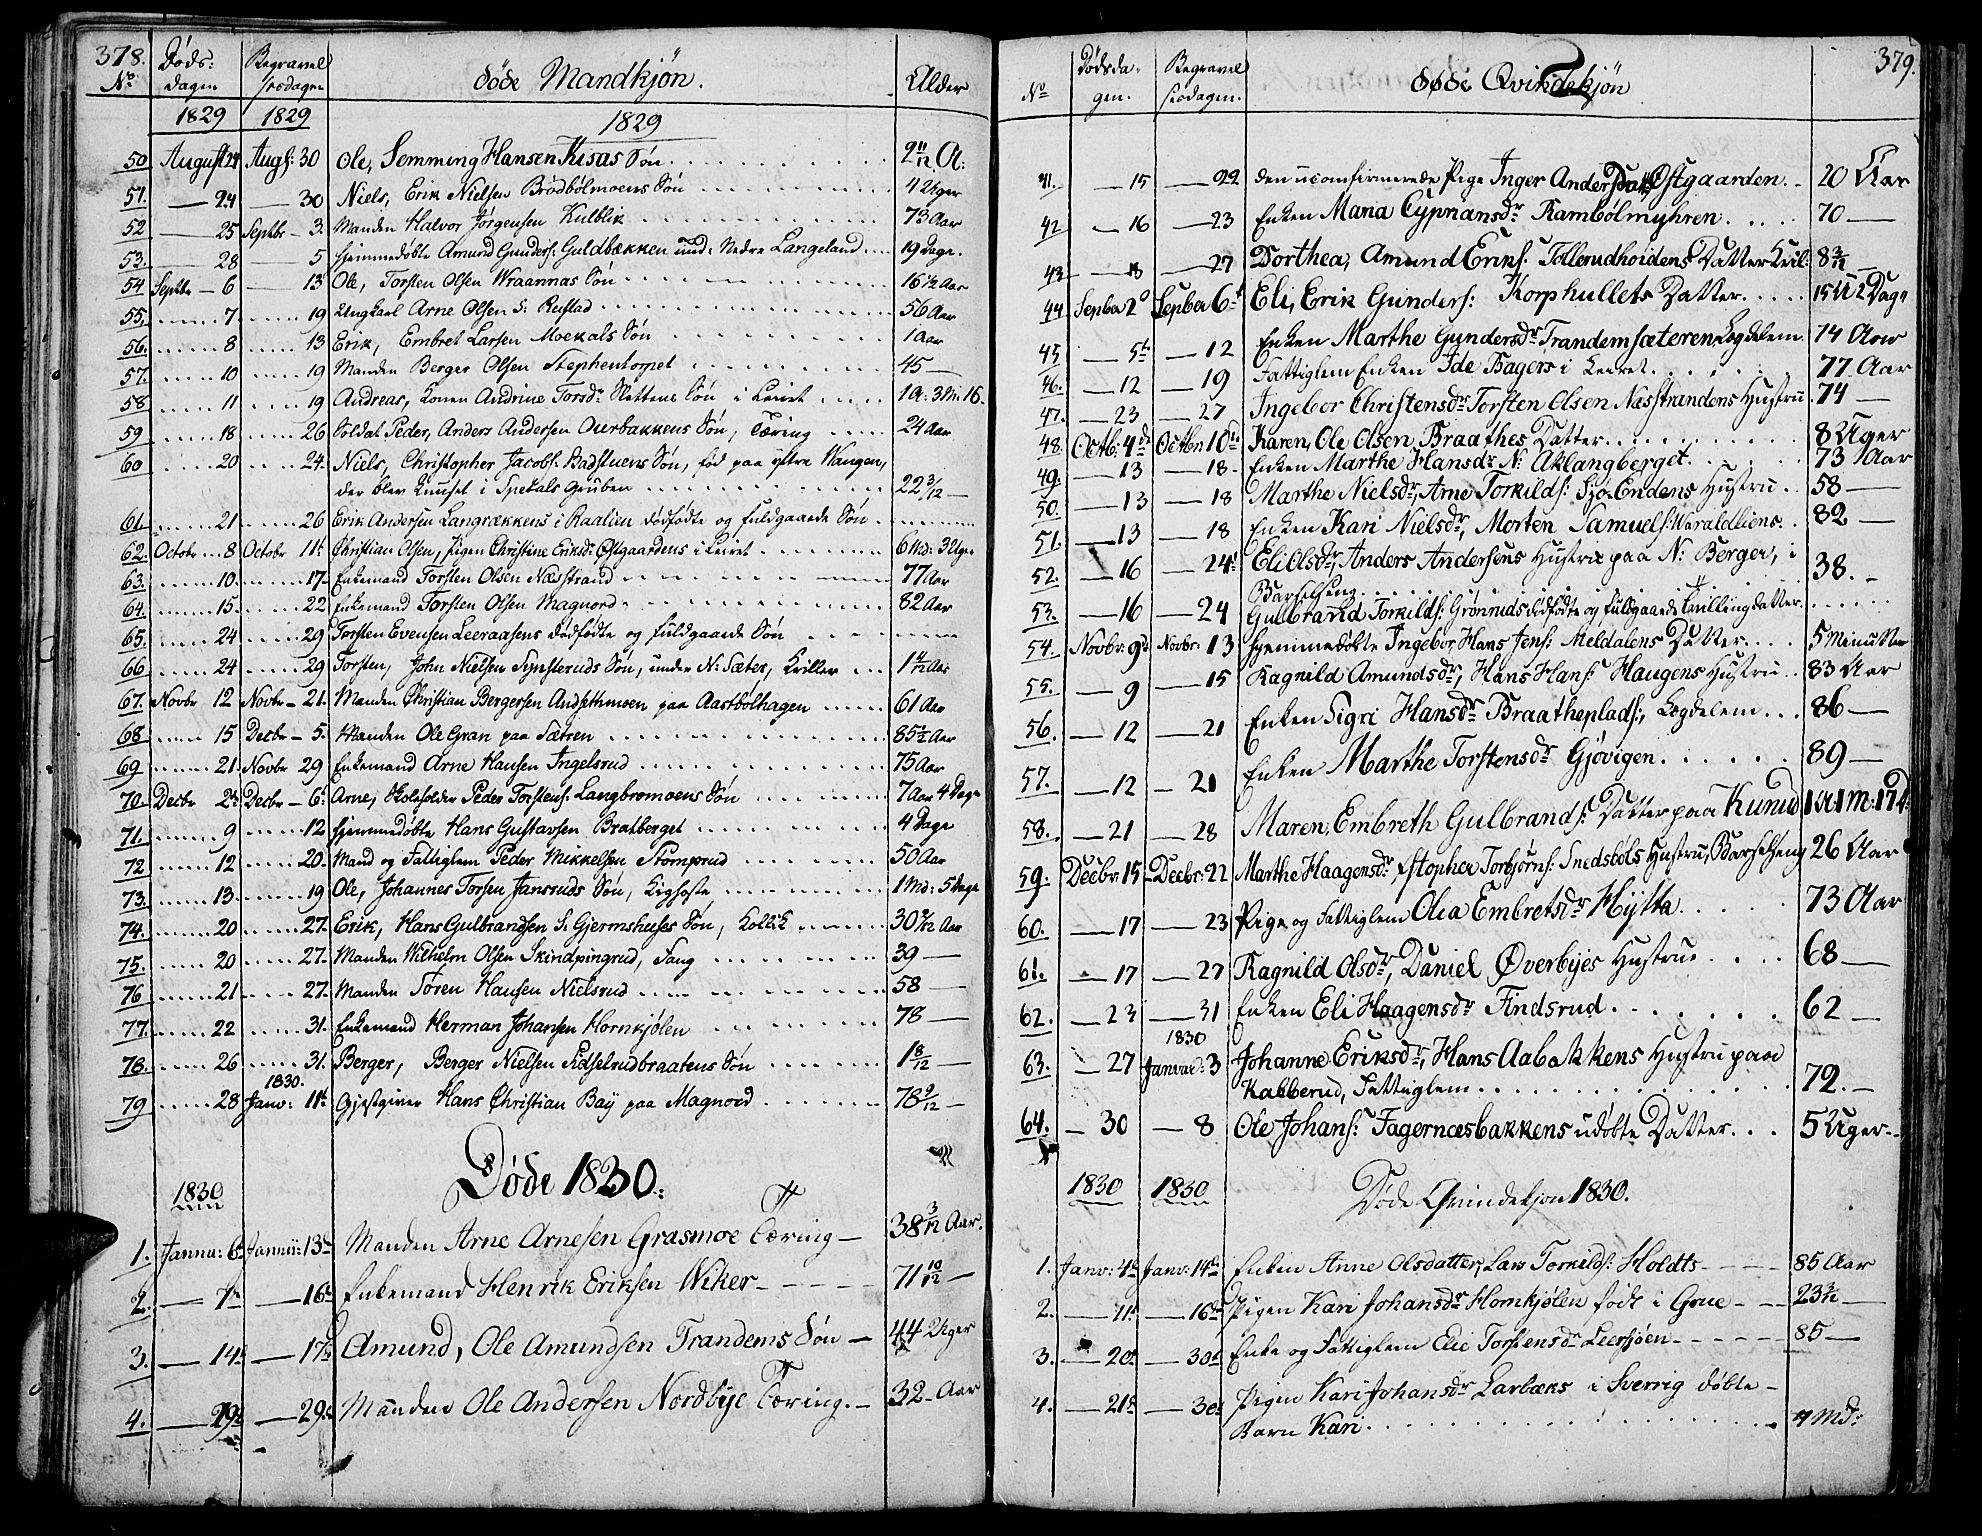 378.
No
Døds:
dagen
Begravel
sesdagen
døde Mandkjøn.
Alder
1829 1829 1829
50 August 24 Augs: 30 Ole, Semming Hansen Kisas Søn 2 11/12 A:
51. — 24 — 30 Niels, Erik Nielsen Brødbølmoens Søn 4 Uger
52 — 25 Septbr — 3. Manden Halvor Jørgensen Kulblik 73 Aar
53. — 28 — 5 hjemmedøbte Amund Gunders: Guldbækken und: Nedre Langeland 19 Dage.
54 Septbr — 6 — 13 Ole, Torsten Olsen Wraannas Søn 16 1/2 Aar
55. 7. 19 Ungkarl Arne Olsen S: Rustad 56 Aar
56. 8 13 Erik, Embret Larsen Moekals Søn 1 Aar
57. 10 19 Manden Berger Olsen Stephentorpet 45 —
58 11 19 Andreas, Konen Andrine Torsdr Slettens Søn i Leiret 1 A: 3 M: 16.
59 18 26 Soldat Peder, Anders Andersen Overbakkens Søn, Tæring 24 Aar
60 20 24. Niels, Christopher Jacobs: Badstuens Søn, fød paa ystre Wangen,
der blev knuset i Spetals Gruben 22 3/12 —
61. 21 26 Erik Andersen Langrækkens i Raalien dødfødte og fuldgaaede Søn
62. Octobr 8 Octobr 11te Christian Olsen, pigen Christine Eriksdr Østgaardens i Leiret 6 Md: 3 Uger
63. 10. 17 Enkemand Torsten Olsen Næsstrand 77 Aar
64. 15. 22 Enkemand Torsten Olsen Magnord 82 Aar
65. 24 29 Torsten Evensen Leeraasens dødfødte og fuldgaaede Søn
66 24 29 Torsten, John Nielsen Synsteruds Søn, under N: Sæter, Kriller 1 4/12 Aar
67. Novbr 12 Novbr — 21. Manden Christian Bergersen Andsethmoen paa Aastbølhagen 61 Aar
68 15 Decbr — 5. Manden Ole Gran paa Sætren 85 1/2 Aar
69 21. Novbr 29 Enkemand Arne Hansen Ingelsrud 75 Aar
70. Decbr 2de Decbr — 6te Arne, Skoleholder Peder Torstens: Langbromoens Søn 7 Aar 4 Dage
71. 9 12 hjemmedøbte Hans Gustavsen Bratberget 4 Dage
72 12 20. Mand og Fattiglem Peder Mikkelsen Stomprud 50 Aar
73. 13. 19 Ole, Johannes Torsen Jansruds Søn, Kighoste 1 Md: 5 Dage
74. 20 27. Erik, Hans Gulbrandsen S. Gjermshuses Søn, Kollik 30 2/12 Aar
75. 20 27. Manden Wilhelm Olsen Skindpingrud, Fang 39 —
76 21 27. Manden Søren Hansen Nielsrud 58 —
77. 22 31. Enkemand Herman Johansen Hornkjølen 78 —
78. 26 31. Berger, Berger Nielsen Sidselrudbraatens Søn 1 8/12 —
1830.
79 28 Janv: 11te Gjestgiver Hans Christian Baÿ paa Magnord 78 9/12 —
Døde 1830.
1830
1. Janua: 6te Januii: 13de Manden Arne Arnesen Grasmoe Tæring — 38 3/12 Aar.
2. — 7de — 16de Enkemand Henrik Eriksen Wiker 71 10/12 —
3. — 14de — 17de Amund, Ole Amundsen Trandems Søn — 44 Uger
4. — 19de — 29de Manden Ole Andersen Nordbye Tæring. — 32 — Aar
379.
No
Dødsda-
gen.
Begravel
sesdagen.
døde Qvindekjøn
41. — 15 — 22 den uconfirmerede Pige Inger Andersdatter Østgaarden. 20 Aar
42 — 16 — 23 Enken Maria Cypriansdr Rambølmyhren 70 —
43 — 18 — 27 Dorthea, Amund Eriks: Tollerudhoidens Datter Kril: 8 3/12 —
44 Sepber 2d Sepber 6te Eli, Erik Gunders: Korphullets Datter 15 U 2 Dage
45 — 5te — 12 Enken Marthe Gundersdr Trandemsæteren Lægdelem 74 Aar
46. — 12 — 19 Fattiglem Enken Ide Bagers i Leiret 77 Aar
47. — 23 — 27 Ingebor Christensdr Torsten Olsen Næsstrandens Hustru 74 —
48. Octb: 4de Octben 10de Karen, Ole Olsen Braathes Datter 8 Uger
49. — 13 — 18 Enken Marthe Hansdr N: Aklangberget 73 Aar
50. — 13 — 18 Marthe Nielsdr, Arne Torkilds: Sjø-Endens Hustru 58 —
51. — 13 — 18 Enken Kari Nielsdr, Morten Samuels: Waraldliens 82 —
52. — 16 — 24de Eli Olsdr, Anders Andersens Hustrie paa N: Berger, i
Barselseng 38. —
53. — 16 — 24 Gulbrand Torkilds: Grønruds dødfødte og fuldgaaede Tvillingdatter
54. Novbr: 9de Novbr: 13 hjemmedøbte Ingebor, Hans Jens: Meldalens Datter 5 Menutter
55. — 9 — 15 Ragnild Amundsdr, Hans Hans: Haugens Hustru 83 Aar
56. — 12 — 21 Enken Sigri Hansdr Braatheplads:, Lægdelem 86 —
57. — 12 — 21 Enken Marthe Torstensdr Gjøvigen 89 —
58. — 21 — 28 Maren, Embreth Gulbrands: Datter paa Kurud 1 A: 1 M: 17 d:
59. Decbr: 15 Decbr: 22 Marthe Haagensdr, Estopher Torbjørns: Snedsbøls Hustru, Barselseng 26 Aar
60. — 17 — 23 Pige og Fattiglem Olia Embretsdr Hytta 73 Aar
61. — 17 — 27 Ragnild Olsdr, Daniel Øverbyes Hustrue 68 —
62. — 23 — 31 Enken Eli Haagensdr Findsrud 62 —
1830
63. — 27 Januar: 3 Johanne Eriksdr, Hans Aabakkens Hustru paa
Kabberud, Fattiglem 72. —
64. — 30 — 8 Ole Johans: Fagernæsbakkens udøbte Datter 5 Uger
1830 1830 Døde Qvindekjøn 1830.
1. Janv: 4de Janv: 14de Enken Anne Olsdatter, Lars Torkilds: Holdts 85 Aar
2. — 11te — 16de Pigen Kari Johansdr Hornkjølen født i Grue 23 3/12 —
3. — 20de — 30te Enke og Fattiglem Elie Torstensdr Leersjøen 85 —
4. — 21de — 30te Pigen Kari Johansdr Larbæks i Sverrig døbte
Barn Kari 4 Md: